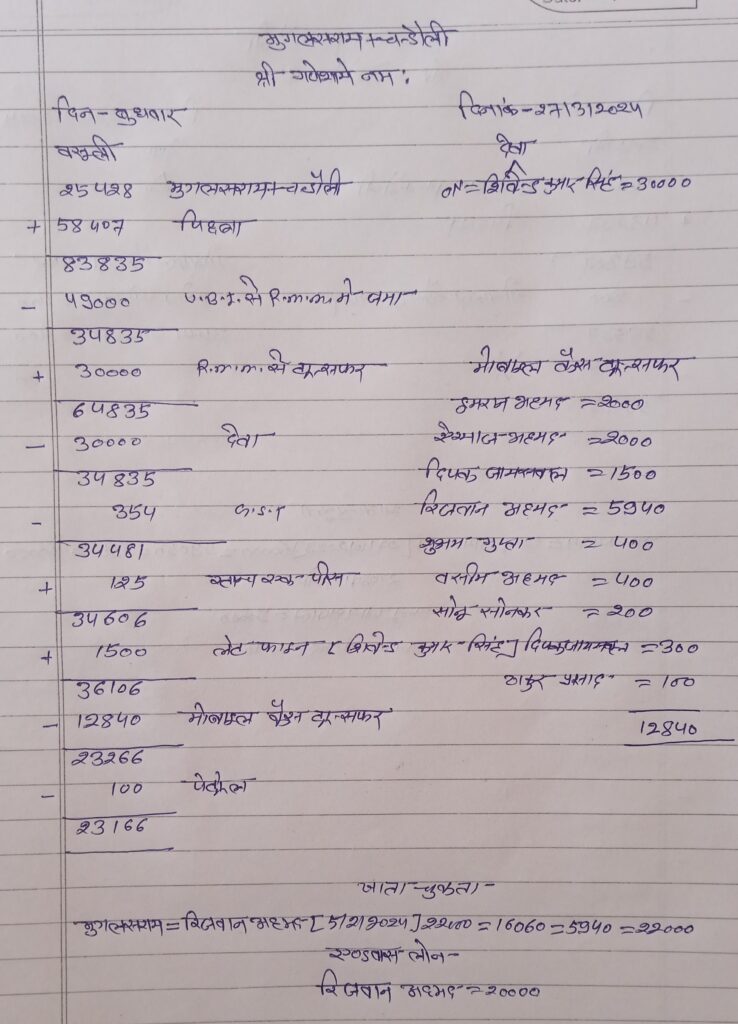 मुगलसराय + चन्दौली
श्री गणेशाये नमः
दिन- बुधवार दिनांक-27/3/2024
वसूली देता
25428 मुगलसराय + चन्दौली 01 = शिवेन्द्र कुमार सिंह = 30000
+ 58407 पिछला
83835
- 49000 U.B.I. से R.m.m. मे जमा
34835
+ 30000 R.m.m. से ट्रान्सफर मोबाइल बैंकिंग ट्रान्सफर
64835 इमरान अहमद = 2000
- 30000 देता अहमद = 2000
34835 दिपक जायसवाल = 1500
- 354 रिजवान अहमद = 5940
34481 शुभम गुप्ता = 400
+ 125 स्टाम्प एक पीस वसीम अहमद = 400
34606 सोनू सोनकर = 200
+ 1500 लेट फाइन [शिवेन्द्र कुमार सिंह] दिपक जायसवाल = 300
36106 ठाकुर प्रसाद = 100
- 12840 मोबाइल बैंकिंग ट्रान्सफर 12840
23266
- 100 पेट्रोल
23166
खाता-चुकता-
मुगलसराय = रिजवान अहमद-[5/2/2024] 22000 = 16060 = 5940 = 22000
एडवांस लोन-
रिजवान अहमद = 20000